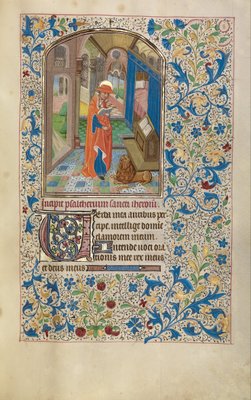 Incipit psalterium sancti iheronimi
Verba mea auribus per
cipe. intellige domine
clamorem meum.
Intende voci ora
tionis mee rex meus
et deus meus